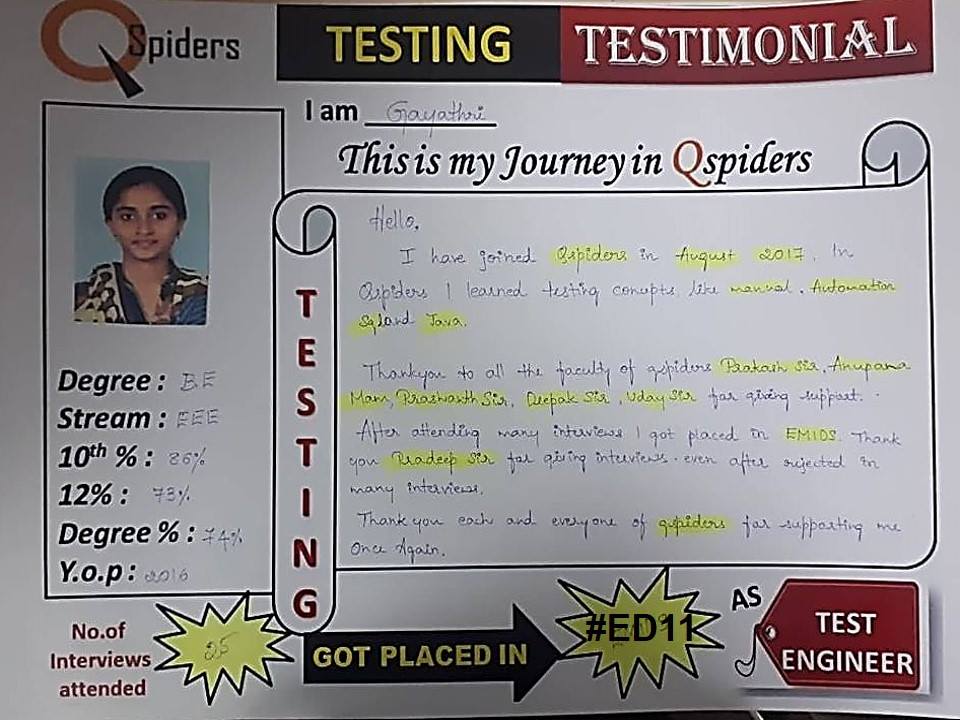 QSpiders
TESTING TESTIMONIAL
I am Gayathri
This is my Journey in Qspiders
Hello,
I have joined Qspiders in August 2017. In
Qspiders I learned testing concepts like manual, Automation
Sql and Java.
Thankyou to all the faculty of qspiders Prakash Sir, Anupama
Mam, Prashanth Sir, Deepak Sir, Uday Sir for giving support.
After attending many interviews I got placed in EMIDS. Thank
you Pradeep Sir for giving interviews. even after rejected in
many interviews.
Thank you each and everyone of qspiders for supporting me
Once Again.
TESTING
Degree : BE
Stream : EEE
10th % : 86%
12% : 73%
Degree % : 74%
Y.o.p : 2016
No.of
Interviews
attended
25
GOT PLACED IN
#ED11
AS
TEST
ENGINEER